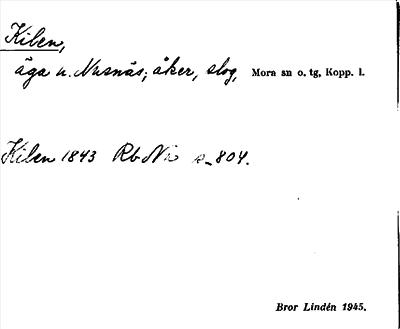 Kilen,
äga u. Nusnäs; åker, slog, Mora sn o. tg, Kopp. l.
Kilen 1843 Rb s. 804.
Bror Lindén 1945.